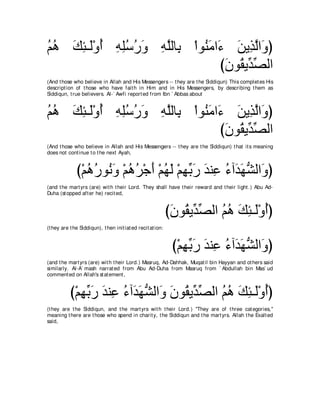 ﴿وَالَّذِينَ ءَامَنُواْ بِاللَّهِ وَرُسُلِهِ أُوْلَـئِكَ هُمُ
الصِّدِّيقُونَ﴾
(And those who believe in Allah and His Messengers -- they are the Siddiqun) This completes His
description of those who have faith in Him and in His Messengers, by describing them as
Siddiqun, true believers. Al-`Awfi reported from Ibn `Abbas about
﴿وَالَّذِينَ ءَامَنُواْ بِاللَّهِ وَرُسُلِهِ أُوْلَـئِكَ هُمُ
الصِّدِّيقُونَ﴾
(And those who believe in Allah and His Messengers -- they are the Siddiqun) that its meaning
does not continue to the next Ayah,
﴿وَالشُّهَدَآءُ عِندَ رَبِّهِمْ لَهُمْ أَجْرُهُمْ وَنُورُهُمْ﴾
(and the martyrs (are) with their Lord. They shall have their reward and their light.) Abu Ad-
Duha (stopped after he) recited,
﴿أُوْلَـئِكَ هُمُ الصِّدِّيقُونَ﴾
(they are the Siddiqun), then initiated recitation:
﴿وَالشُّهَدَآءُ عِندَ رَبِّهِمْ﴾
(and the martyrs (are) with their Lord.) Masruq, Ad-Dahhak, Muqatil bin Hayyan and others said
similarly. Al-A`mash narrated from Abu Ad-Duha from Masruq from `Abdullah bin Mas`ud
commented on Allah's statement,
﴿أُوْلَـئِكَ هُمُ الصِّدِّيقُونَ وَالشُّهَدَآءُ عِندَ رَبِّهِمْ﴾
(they are the Siddiqun, and the martyrs with their Lord.) "They are of three categories,"
meaning there are those who spend in charity, the Siddiqun and the martyrs. Allah the Exalted
said,